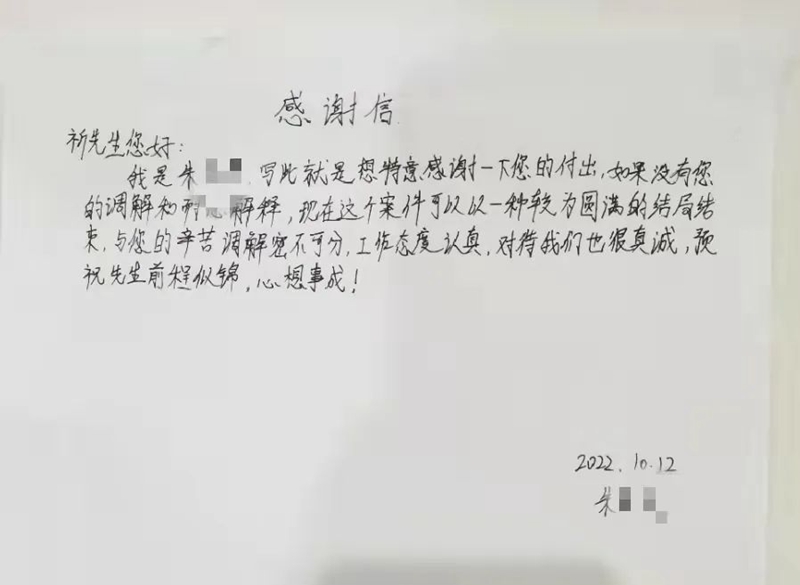 感谢信
祈先生您好：
我是朱 写此就是想特意感谢一下您的付出，如果没有您
的调解和耐心解释，现在这个案件可以以一种较为圆满的结局结
束，与您的辛苦调解密不可分，工作态度认真，对待我们也很真诚，预
祝先生前程似锦，心想事成！
2022.10.12
朱